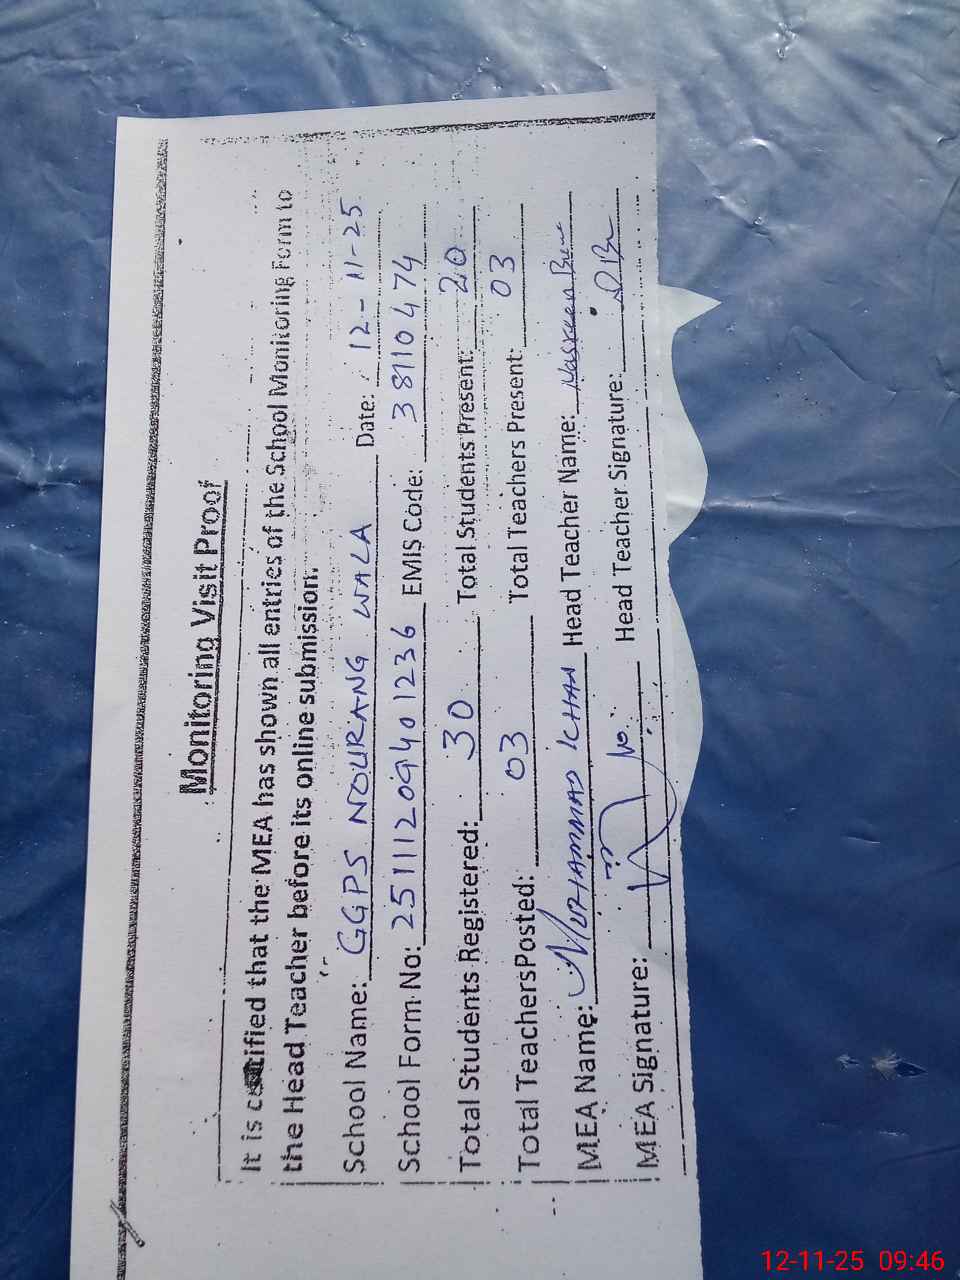 Monitoring Visit Proof
It is certified that the MEA has shown all entries of the School Monitoring Form to
the Head Teacher before its online submission.
School Name: GGPS NOURANG WALA Date: 12-11-25
School Form No: 25111209401236 EMIS Code: 38110474
Total Students Registered: 30 Total Students Present: 20
Total TeachersPosted: 03 Total Teachers Present: 03
MEA Name: MUHAMMAD KHAN Head Teacher Name:
MEA Signature: Head Teacher Signature:
12-11-25 09:46